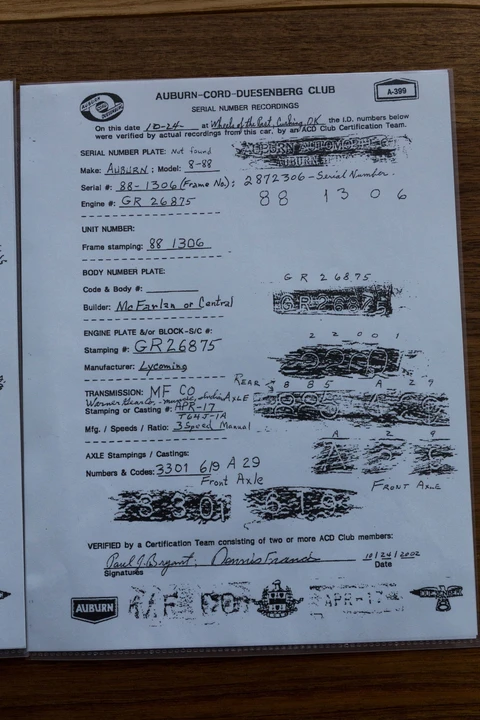 AUBURN-CORD-DUESENBERG CLUB
A-399
SERIAL NUMBER RECORDINGS
On this date 10-24 at Wheels of the Past, Cushing, OK the I.D. numbers below
were verified by actual recordings from this car, by an ACD Club Certification Team.
SERIAL NUMBER PLATE: Not found
AUBURN AUTOMOBILE C
AUBURN
Make: AUBURN; Model: 8-88
Serial #: 88-1306 (Frame No.); 2872306-Serial Number.
Engine #: GR 26875
88 1306
UNIT NUMBER:
Frame stamping: 88 1306
BODY NUMBER PLATE:
Code & Body #:
GR 26875
Builder: McFarlan or Central
GR26875
ENGINE PLATE &/or BLOCK-S/C #:
Stamping #: GR26875
22001
Manufacturer: Lycoming
TRANSMISSION: MF CO
REAR AXLE
885 A 29
Warner Gear Co. - Muncie, Indiana
Stamping or Casting #: APR-17
T64J-1A
Mfg. / Speeds / Ratio: 3 Speed Manual
A 29
AXLE Stampings / Castings:
Numbers & Codes: 3301 619 A 29
Front Axle
FRONT AXLE
3301 619
VERIFIED by a Certification Team consisting of two or more ACD Club members:
Paul J. Bryant; Dennis Franci
10/24/2002
Signatures
Date
AUBURN
MF CO
APR-17